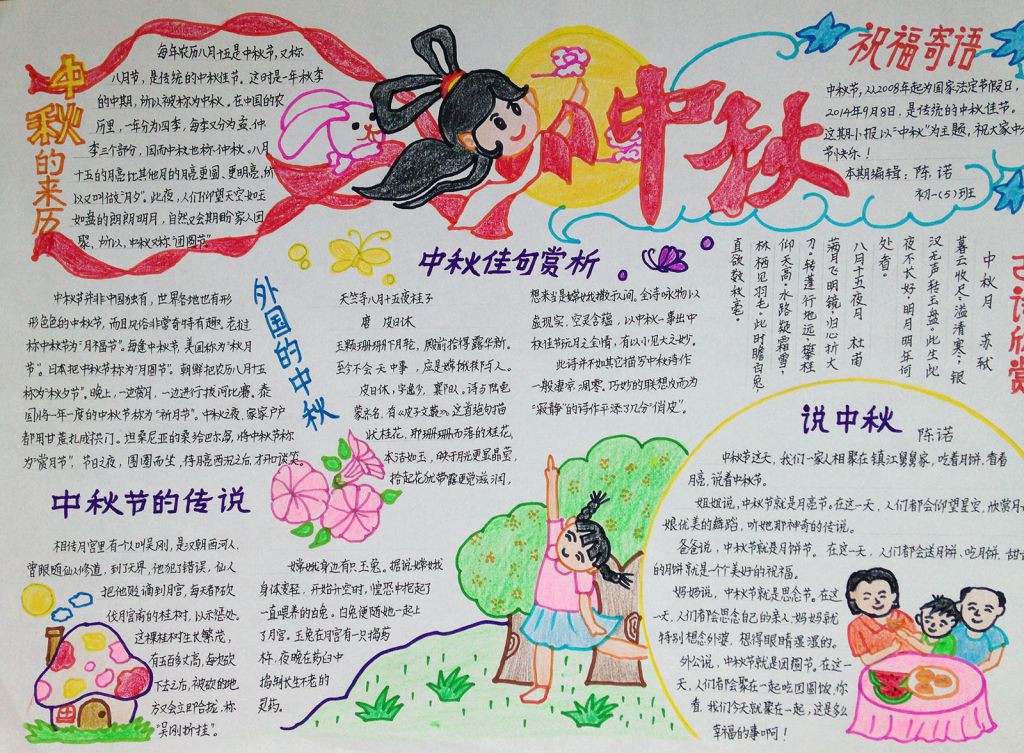 中秋的来历
每年农历八月十五是中秋节,又称
八月节,是传统的中秋佳节。这时是一年秋季
的中期,所以被称为中秋。在中国的农
历里,一年分为四季,每季又分为孟、仲、
季三个部分,因而中秋也称仲秋。八月
十五的月亮比其他月的月亮更圆、更明亮,所
以又叫做“月夕”。此夜,人们仰望天空如玉
如盘的朗朗明月,自然又会期盼家人团
聚。所以,中秋又称“团圆节”
中秋
祝福寄语
中秋节,以2008年起为国家法定节假日,
2014年9月8日,是传统的中秋佳节。
这期小报以“中秋”为主题,祝大家中秋
节快乐!
本期编辑:陈诺
初一(5)班
外国的中秋
中秋节并非中国独有,世界各地也有形
形色色的中秋节,而且风俗非常奇特有趣。老挝
称中秋节为“月福节”。每逢中秋节,美国称为“秋月
节”。日本把中秋节称为“月圆节”。朝鲜把农历八月十五
称为“秋夕节”。晚上,一边赏月,一边进行拔河比赛。泰
国将一年一度的中秋节称为“祈月节”。中秋之夜,家家户户
都用甘蔗扎成拱门。坦桑尼亚的桑给巴尔岛,将中秋节称
为“赏月节”,节日之夜,围圈而坐,待月亮西沉之后,才开口谈笑。
中秋佳句赏析
天竺寺八月十五夜桂子
唐 皮日休
玉颗珊珊下月轮,殿前拾得露华新。
至今不会天中事,应是嫦娥掷与人。
皮日休,字逸少,襄阳人,诗与陆龟
蒙齐名,有《皮子文薮》。这首绝句描
状桂花,那珊珊而落的桂花,
本洁如玉,映于月光更显晶莹,
拾起花犹带露更觉滋润,
想来当是嫦娥撒于人间。全诗咏物以
虚现实,空灵含蕴,以中秋一事出中
秋佳节玩月之全情,有以小见大之妙。
此诗并不如其它描写中秋诗作
一般凄凉、凋零,巧妙的联想反而为
“寂静”的诗作平添了几分“俏皮”。
古诗欣赏
中秋月 苏轼
暮云收尽溢清寒,银
汉无声转玉盘。此生此
夜不长好,明月明年何
处看。
八月十五夜月 杜甫
满月飞明镜,归心折大
刀。转蓬行地远,攀桂
仰天高。水路疑霜雪,
林栖见羽毛。此时瞻白兔,
直欲数秋毫。
中秋节的传说
相传月宫里有个人叫吴刚,是汉朝西河人,
曾跟随仙人修道,到了天界,他犯了错误,仙人
把他贬谪到月宫,每天都砍
伐月宫前的桂树,以示惩处。
这棵桂树生长繁茂,
有五百多丈高,每次砍
下去之后,被砍的地
方又会立即合拢,称
“吴刚折桂”。
嫦娥身边有只玉兔。据说嫦娥
身体变轻,开始升空时,惶恐中抱起了
一直喂养的白兔。白兔便随她一起上
了月宫。玉兔在月宫有一只捣药
杵,夜晚在药臼中
捣制长生不老的
灵药。
说中秋
陈诺
中秋节这天,我们一家人相聚在镇江舅舅家,吃着月饼,看着
月亮,说着中秋节。
姐姐说,中秋节就是月亮节。在这一天,人们都会仰望星空,欣赏月
娘优美的舞蹈,听她那神奇的传说。
爸爸说,中秋节就是月饼节。在这一天,人们都会送月饼、吃月饼,甜甜
的月饼就是一个个美好的祝福。
妈妈说,中秋节就是思念节。在这
一天,人们都会思念自己的亲人,妈妈就
特别想念外婆,想得眼睛湿湿的。
外公说,中秋节就是团圆节。在这一
天,人们都会聚在一起吃团圆饭,你
看,我们今天就聚在一起,这是多么
幸福的事啊!